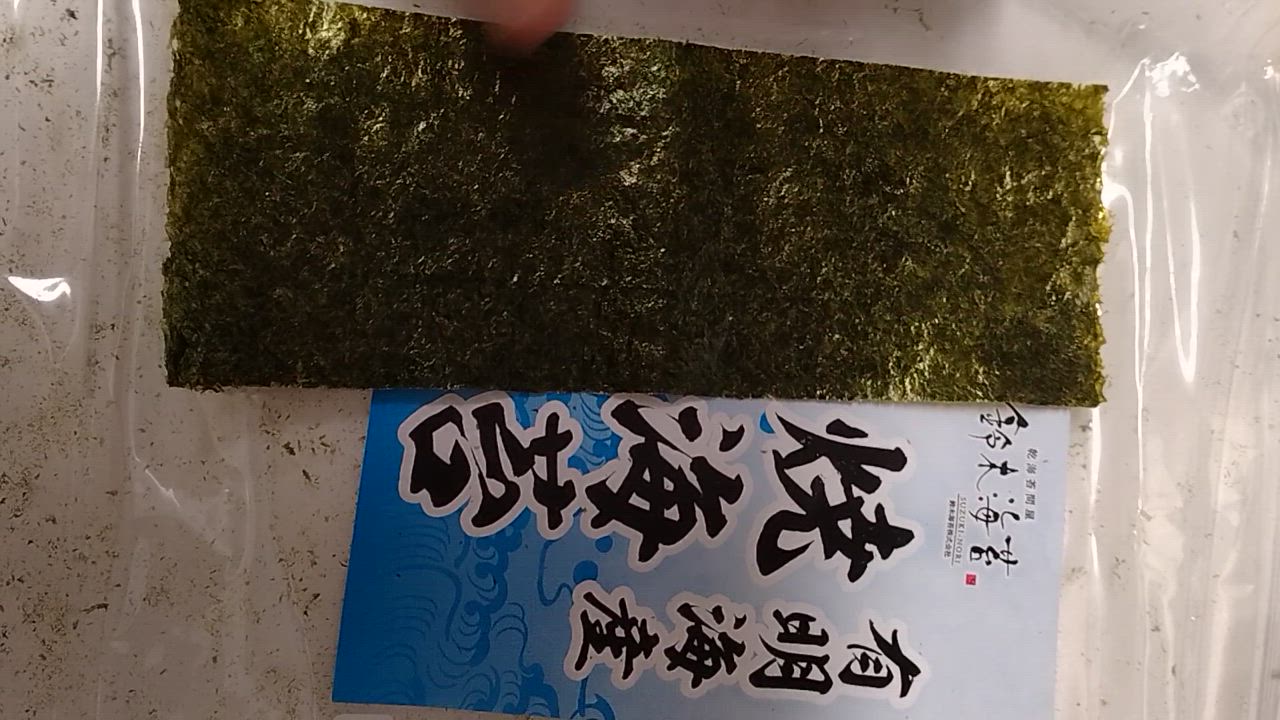 有明海産
焼海苔
乾海苔問屋
鈴木海苔
SUZUKI-NORI
鈴木海苔株式会社